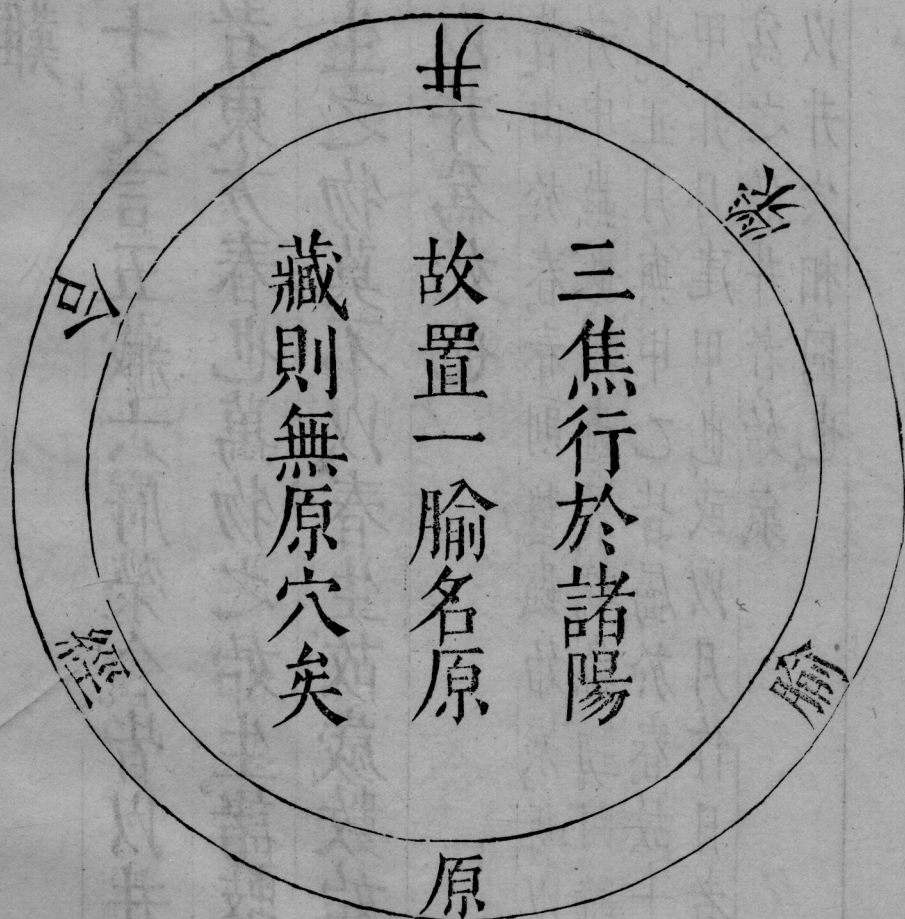 井
榮
腧
原
經
合
三焦行於諸陽
故置一腧名原
藏則無原穴矣